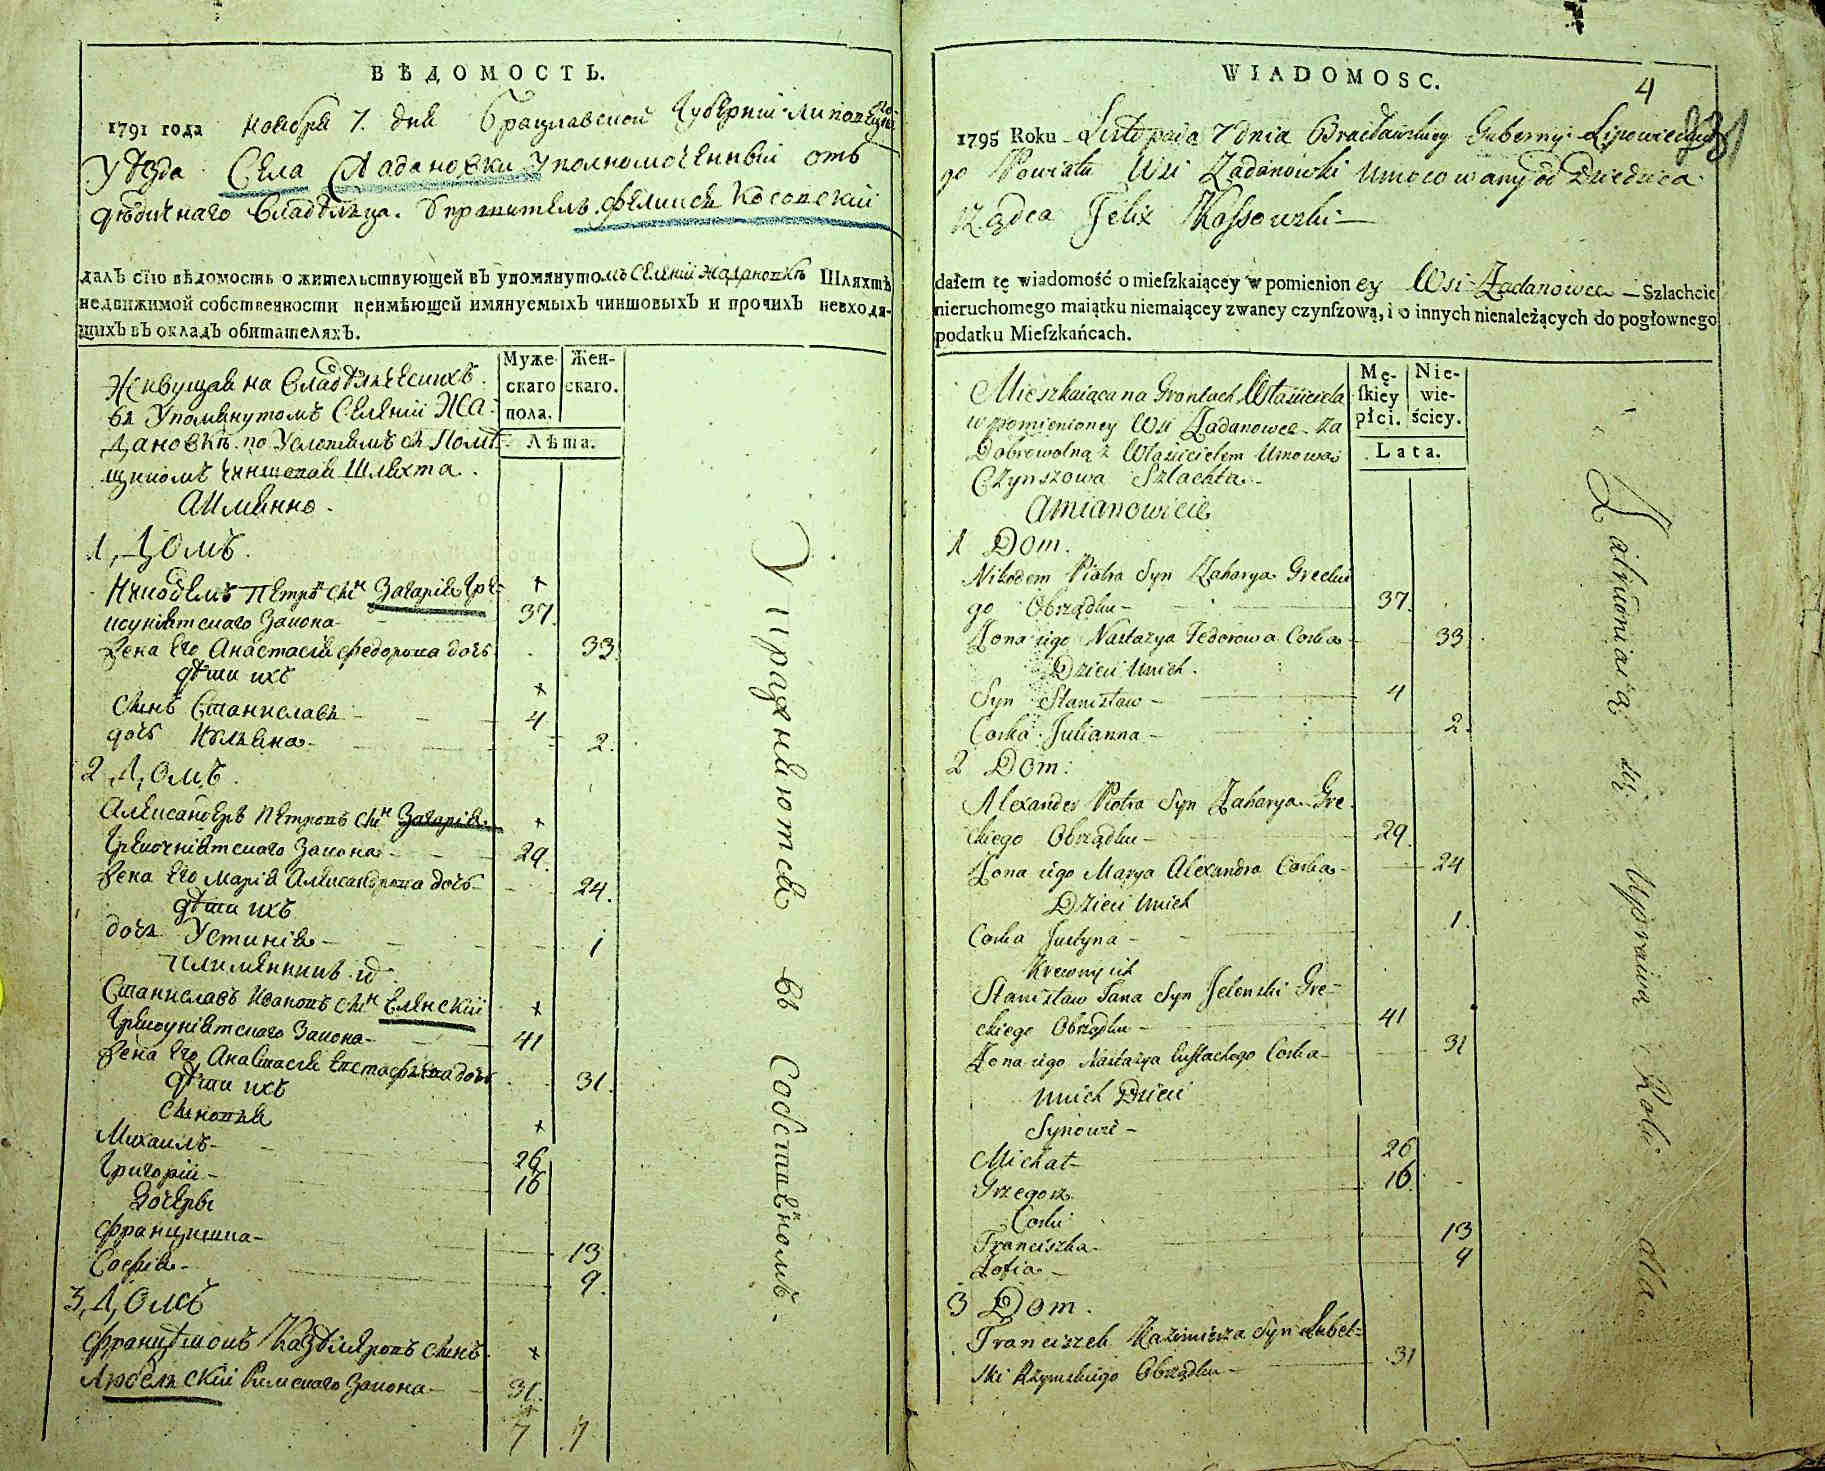 ВѢДОМОСТЬ.
1791 года ноября 7. дня Брацлавской Губерніи Липовецкаго
Уѣзда Села Жадановки Уполномоченный отъ
дѣдичнаго владѣльца. Управитель. Феликсъ Косовскій
далъ сїю вѣдомость о жительствующей въ упомянутомъ Селеніи Жадановкѣ Шляхтѣ
недвижимой собственности неимѣющей имянуемыхъ чиншовыхъ и прочихъ невходя-
щихъ въ окладъ обитателяхъ.
Муже-
скаго
пола.
Жен-
скаго.
Лѣта.
Живущая на Владѣльческихъ
въ Упомянутомъ Селеніи Жа-
дановкѣ. по Условіямъ съ Помѣ-
щикомъ Чиншовая Шляхта.
А Имянно.
1, Домъ.
Никодемъ Петровъ сынъ Захарія Гре-
коуніятскаго Закона 37
Жена его Анастасія Федорова дочь 33.
дѣти ихъ
Сынъ Станиславъ 4
дочь Юліяна 2.
2 Домъ.
Александеръ Петровъ сынъ Захарія
Грекоуніятскаго Закона 29.
Жена его Марія Александрова дочь 24.
дѣти ихъ
дочь Устинія 1
Племянникъ
Станиславъ Ивановъ сынъ Еленскій
Грекоуніятскаго Закона 41
Жена его Анастасія Евстафьева дочь 31.
дѣти ихъ
Сыновья
Михаилъ 26
Григорій 16
Дочери
Францишка 13
Софія 9.
3, Домъ
Францишекъ Казимеровъ сынъ
Любельскій Римскаго Закона 31.
7 7
Упражняются въ Собственномъ.
WIADOMOSC.
4
1795 Roku Listopada 7 dnia Bracławskiey Gubernii Lipowieckie-
go Powiatu Wsi Żadanowki Umocowany od Dziedzica
Rządca Felix Kossowski
dałem tę wiadomość o mieſzkaiącey w pomienion ey Wsi Żadanowce Szlachcie
nieruchomego maiątku niemaiącey zwaney czynſzową, i o innych nienależących do pogłownego
podatku Mieſzkańcach.
Mę-
ſkiey
płci.
Nie-
wie-
ściey.
Lata.
Mieszkaiąca na Gruntach Właściciela
w pomienioney Wsi Żadanowce Za
Dobrowolną z Właścicielem Umową
Czynszowa Szlachta
Amianowicie
1 Dom.
Nikodem Piotra Syn Zaharya Greckie
go Obrządku 37.
Żona iego Nastazya Fedorowa Corka 33
Dzieci Unich.
Syn Stanisław 4
Corka Julianna 2.
2 Dom:
Alexander Piotra Syn Zaharya Gre-
ckiego Obrządku 29.
Żona iego Marya Alexandra Corka 24
Dzieci Unich
Corka Justyna 1.
Krewny ich
Stanisław Jana Syn Jelenski Gre-
ckiego Obrządku 41
Żona iego Nastazya Eustachego Corka 31
Unich Dzieci
Synowie
Michał 26
Grzegorz 16
Corki
Franciszka 13
Zofia 9
3 Dom.
Franciszek Kazimierza Syn Lubel-
ski Rzymskiego Obrządku 31
Zatrudniaią się Uprawą Roli